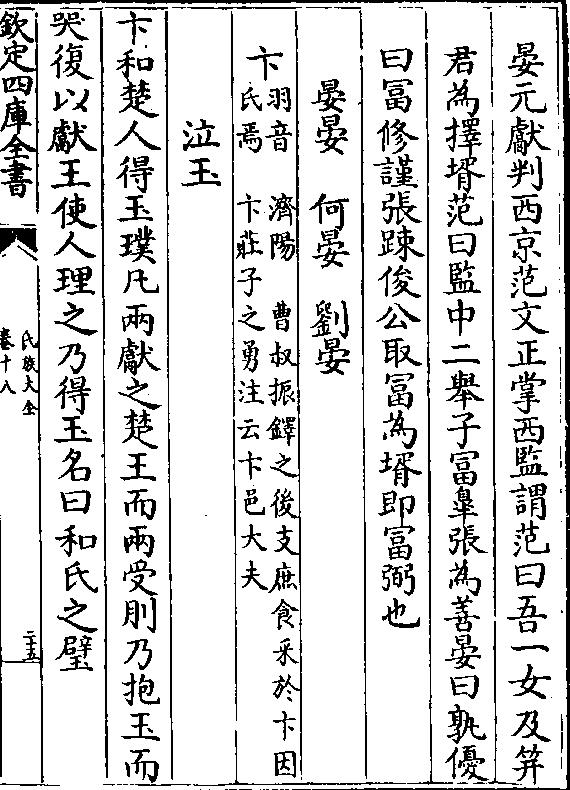 晏元獻判西京范文正掌西監謂范曰吾一女及笄
君為擇壻范曰監中二舉子冨臯張為善晏曰孰優
曰冨修謹張踈俊公取冨為壻即冨弼也
晏晏　何晏　劉晏
卞　羽音　濟陽　曹叔振鐸之後支庶食采於卞因
氏焉　卞莊子之勇注云卞邑大夫
泣玉
卞和楚人得玉璞凡兩獻之楚王而兩受刖乃抱玉而
哭復以獻王使人理之乃得玉名曰和氏之璧
欽定四庫全書
氏族大全
卷十八
二十五